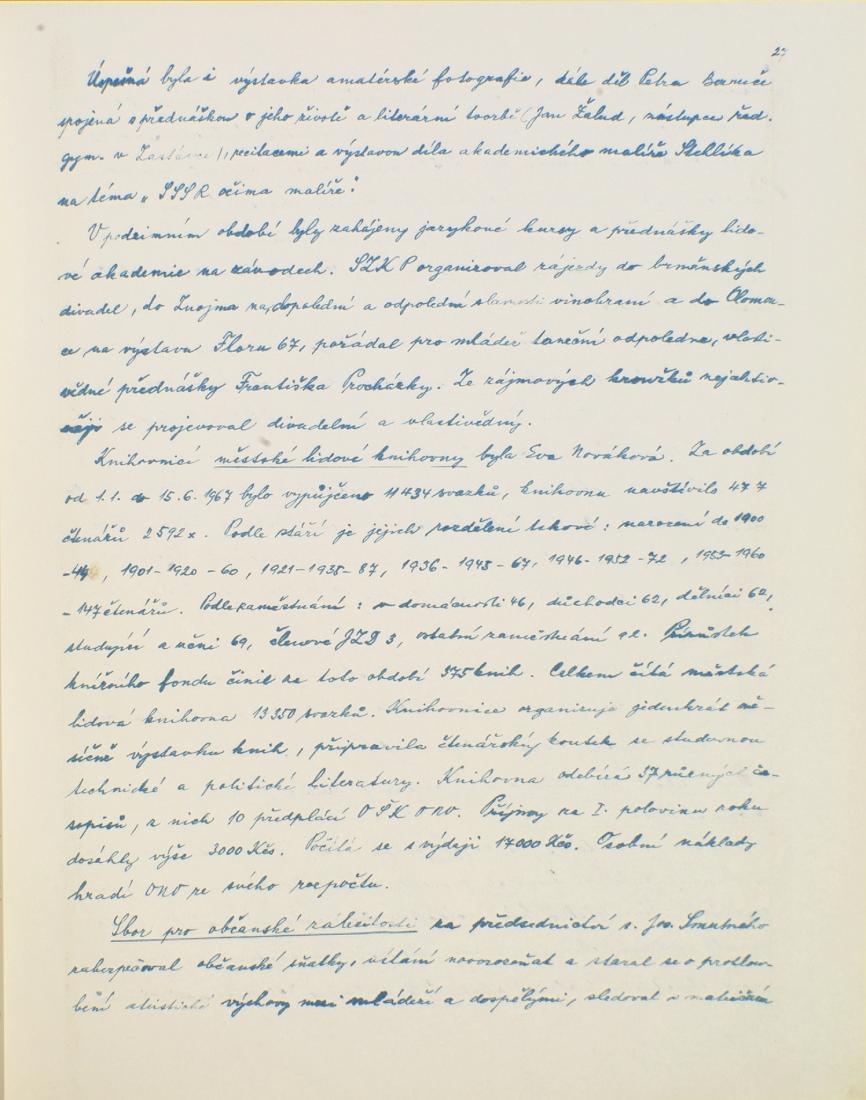 27
Úspěšná byla i výstavka amatérské fotografie, dále děl Petra
spojená s přednáškou o jeho životě a literární tvorbě (Jan Žalud, zástupce řed.
gym. v Zastávce), recitacemi a výstavou díla akademického malíře Stehlíka
na téma „SSSR očima malíře".
V podzimním období byly zahájeny jazykové kursy a přednášky lido-
vé akademie na závodech. SZK P organizoval zájezdy do brněnských
divadel, do Znojma na dopolední a odpolední slavnosti vinobraní a do Olomou-
ce na výstavu Flora 67, pořádal pro mládež taneční odpoledne, vlasti-
vědné přednášky Františka Procházky. Ze zájmových kroužků nejaktiv-
něji se projevoval divadelní a vlastivědný.
Knihovnicí městské lidové knihovny byla Eva Nováková. Za období
od 1.1. do 15.6. 1967 bylo vypůjčeno 11434 svazků, knihovnu navštívilo 477
čtenářů 2592 x. Podle stáří je jejich rozdělení takové: narození do 1900
, 1901-1920 - 60, 1921-1935 - 87, 1936 - 1945 - 67, 1946-1952 - 72, 1953-1960
- 147 čtenářů. Podle zaměstnání: v domácnosti 46, důchodci 62, dělníci 62,
studující a učni 69, členové JZD 3, ostatní zaměstnání 92. Přírůstek
knižního fondu činil za toto období 375 knih. Celkem čítá městská
lidová knihovna 13350 svazků. Knihovnice organizuje jedenkrát mě-
síčně výstavku knih, připravila čtenářský koutek se studovnou
technické a politické literatury. Knihovna odebírá 37 různých ča-
sopisů, z nich 10 předplácí OŠK ONV. Příjmy za I. polovinu roku
dosáhly výše 3000 Kčs. Počítá se s výdaji 17000 Kčs. Osobní náklady
hradí ONV ze svého rozpočtu.
Sbor pro občanské záležitosti za předsednictví s. Jos. Smutného
zabezpečoval občanské sňatky, vítání novorozeňat a staral se o prohlou-
bení ateistické výchovy mezi mládeží a dospělými, sledoval